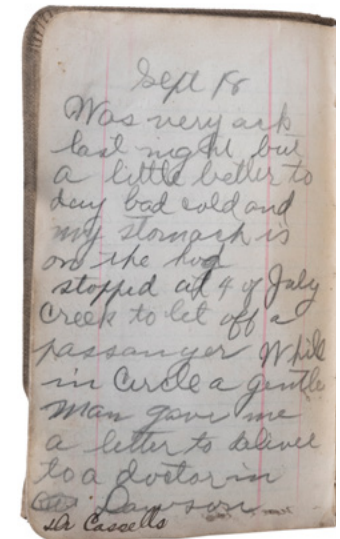 Sept 18
Was very sick
last night but
a little better to
day bad cold and
my stomach is
on the hog
stopped at 4 of July
Creek to let off a
passanger While
in Circle a gentle
man gave me
a letter to deliver
to a doctor in
Dawson
Dr Cassells